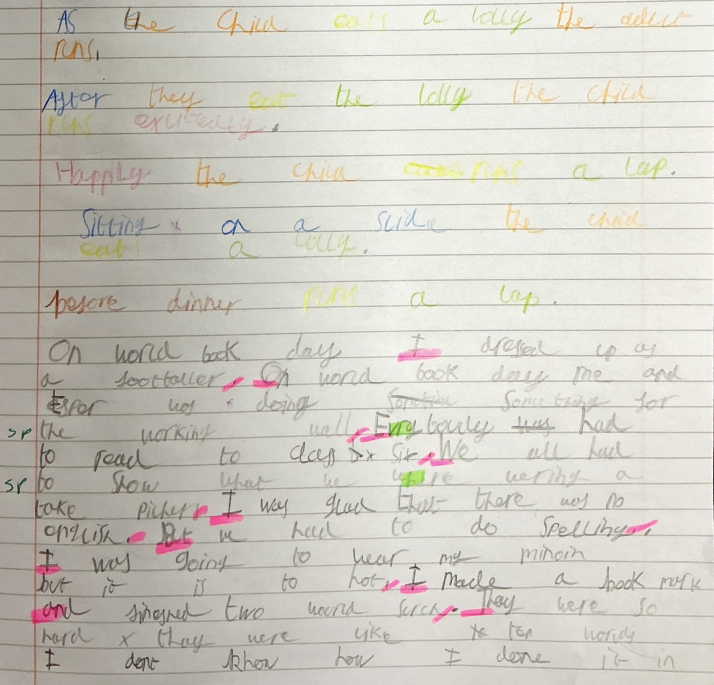 As the child eats a lolly the adult
runs.
After they eat the lolly the child
runs exitedly.
Happily the child runs a lap.
Sitting on a slide the child
eat a lolly.
before dinner runs a lap.
On world book day I dressed up as
a foottaller. On world book day me and
was doing Something for
sp the working wall. Evrybody had
to read to class six. We all had
sp to show what we where wering a
take picher. I was glad that there was no
english. But we had to do spelling.
I was going to wear my
but it is to hot. I made a book mark
and two world serch. They were so
hard they were like ten words
I dont know how I done it in